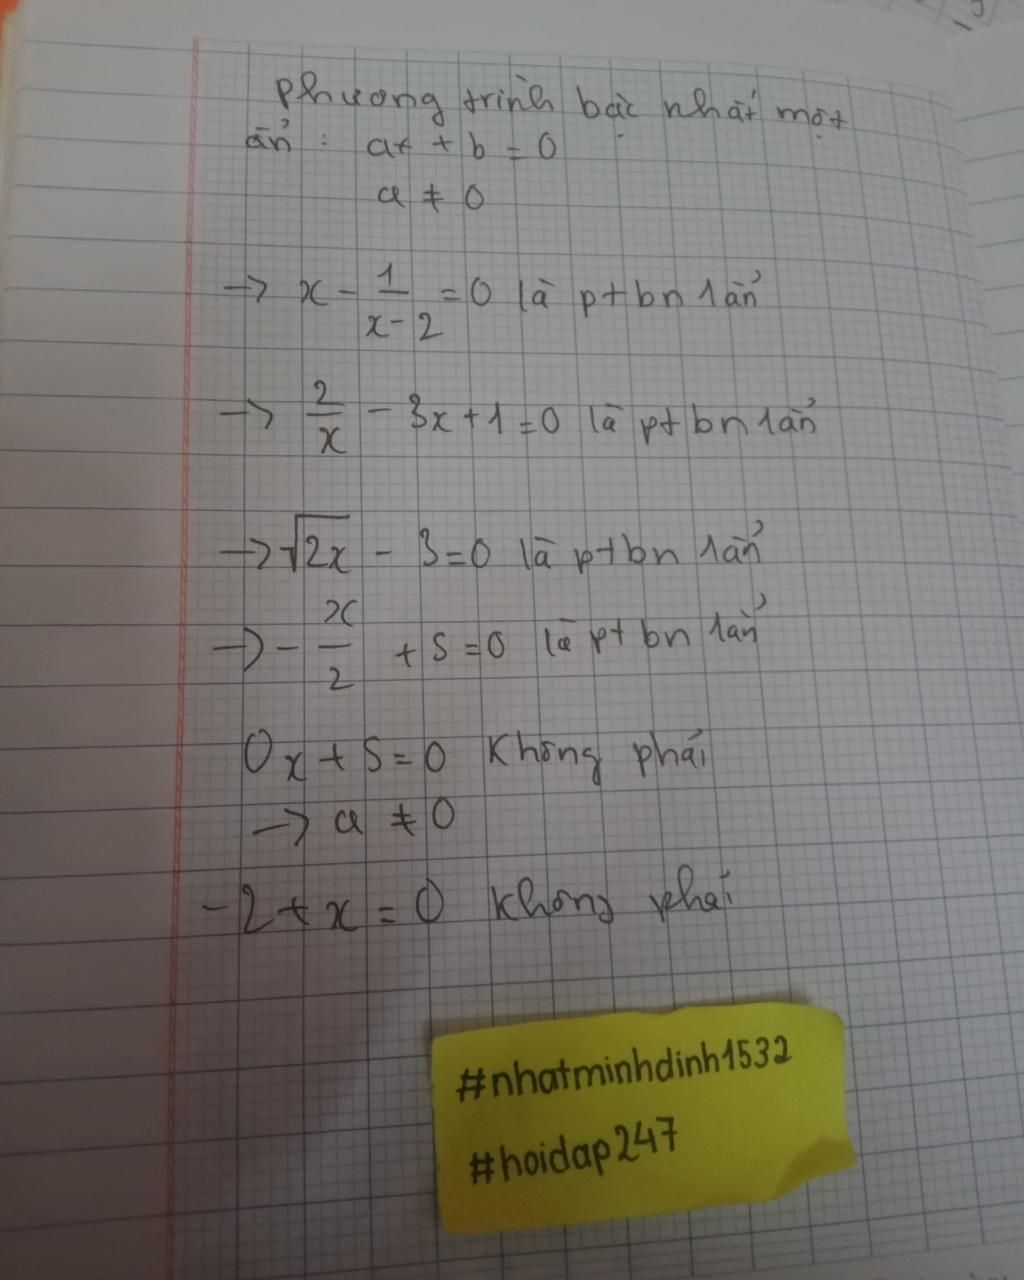 Phương trình bậc nhất một
ẩn : ax + b = 0
a ≠ 0
→ x - 1/(x-2) = 0 là pt bn 1 ẩn
→ 2/x - 3x + 1 = 0 là pt bn 1 ẩn
→ √2x - 3 = 0 là pt bn 1 ẩn
→ - x/2 + 5 = 0 là pt bn 1 ẩn
0x + 5 = 0 Không phải
→ a ≠ 0
-2 + x = 0 không phải
#nhatminhdinh1532
#hoidap247